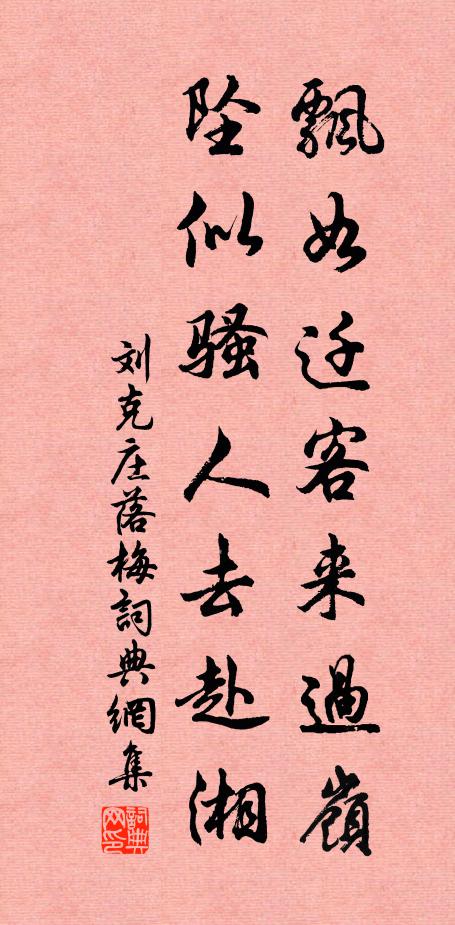 飄如迁客来過嶺
坠似骚人去赴湘
刘克庄落梅詞典網集
詞典网印